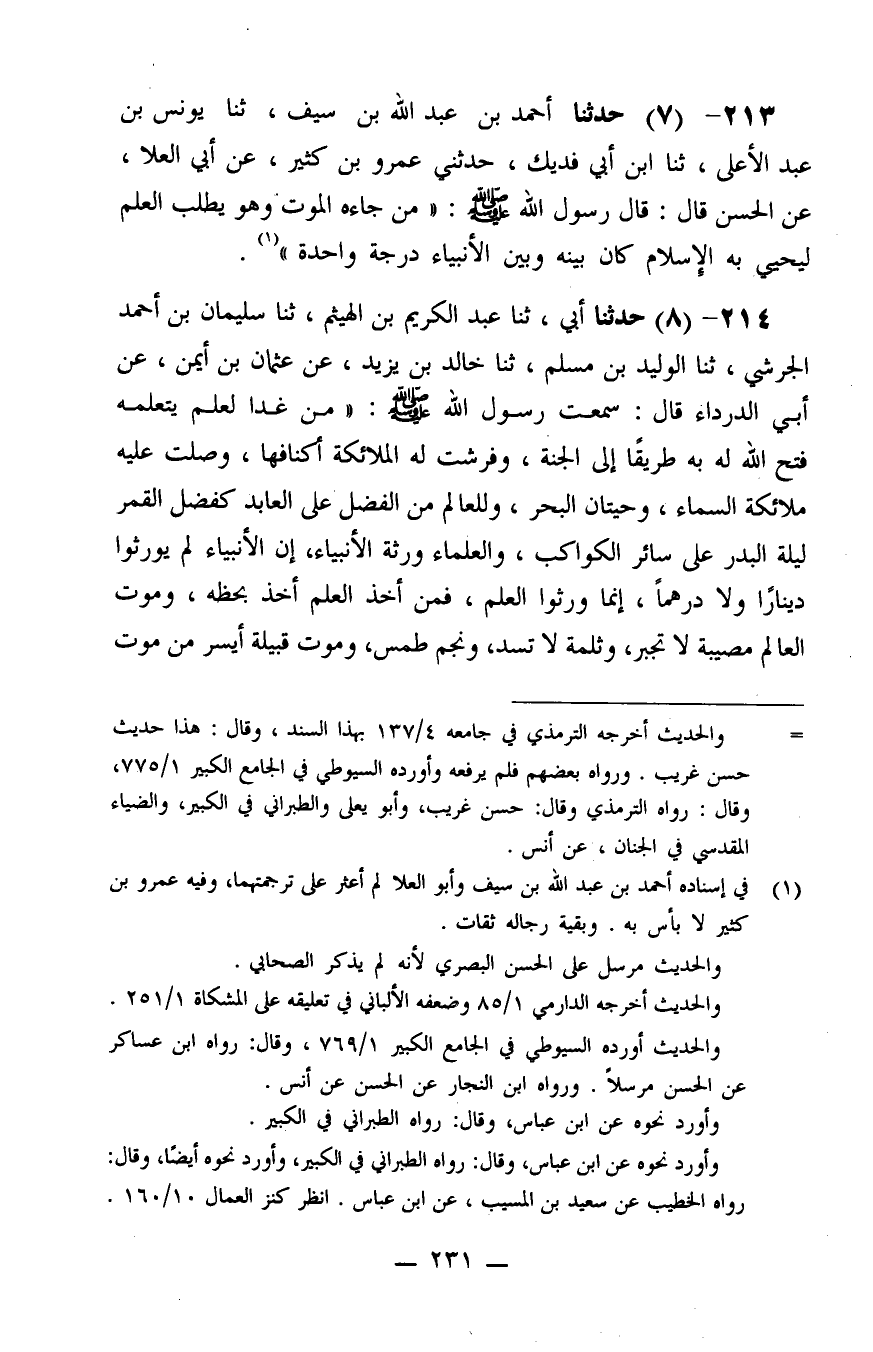 ٢١٣- (٧) حدثنا أحمد بن عبد الله بن سيف ، ثنا يونس بن
عبد الأعلى ، ثنا ابن أبي فديك ، حدثني عمرو بن كثير ، عن أبي العلا ،
عن الحسن قال : قال رسول الله ﷺ : « من جاءه الموت وهو يطلب العلم
ليحيي به الإسلام كان بينه وبين الأنبياء درجة واحدة »(١) .
٢١٤- (٨) حدثنا أبي ، ثنا عبد الكريم بن الهيثم ، ثنا سليمان بن أحمد
الجرشي ، ثنا الوليد بن مسلم ، ثنا خالد بن يزيد ، عن عثمان بن أيمن ، عن
أبي الدرداء قال : سمعت رسول الله ﷺ : « من غدا لعلم يتعلمه
فتح الله له به طريقًا إلى الجنة ، وفرشت له الملائكة أكنافها ، وصلت عليه
ملائكة السماء ، وحيتان البحر ، وللعالم من الفضل على العابد كفضل القمر
ليلة البدر على سائر الكواكب ، والعلماء ورثة الأنبياء، إن الأنبياء لم يورثوا
دينارًا ولا درهماً ، إنما ورثوا العلم ، فمن أخذ العلم أخذ بحظه ، وموت
العالم مصيبة لا تجبر، وثلمة لا تسد، ونجم طمس، وموت قبيلة أيسر من موت
= والحديث أخرجه الترمذي في جامعه ١٣٧/٤ بهذا السند ، وقال : هذا حديث
حسن غريب . ورواه بعضهم فلم يرفعه وأورده السيوطي في الجامع الكبير ٧٧٥/١،
وقال : رواه الترمذي وقال: حسن غريب، وأبو يعلى والطبراني في الكبير، والضياء
المقدسي في الجنان ، عن أنس .
(١) في إسناده أحمد بن عبد الله بن سيف وأبو العلا لم أعثر على ترجمتهما، وفيه عمرو بن
كثير لا بأس به . وبقية رجاله ثقات .
والحديث مرسل على الحسن البصري لأنه لم يذكر الصحابي .
والحديث أخرجه الدارمي ٨٥/١ وضعفه الألباني في تعليقه على المشكاة ٢٥١/١ .
والحديث أورده السيوطي في الجامع الكبير ٧٦٩/١ ، وقال: رواه ابن عساكر
عن الحسن مرسلاً . ورواه ابن النجار عن الحسن عن أنس .
وأورد نحوه عن ابن عباس، وقال: رواه الطبراني في الكبير .
وأورد نحوه عن ابن عباس، وقال: رواه الطبراني في الكبير، وأورد نحوه أيضًا، وقال:
رواه الخطيب عن سعيد بن المسيب ، عن ابن عباس . انظر كنز العمال ١٦٠/١٠ .
— ٢٣١ —